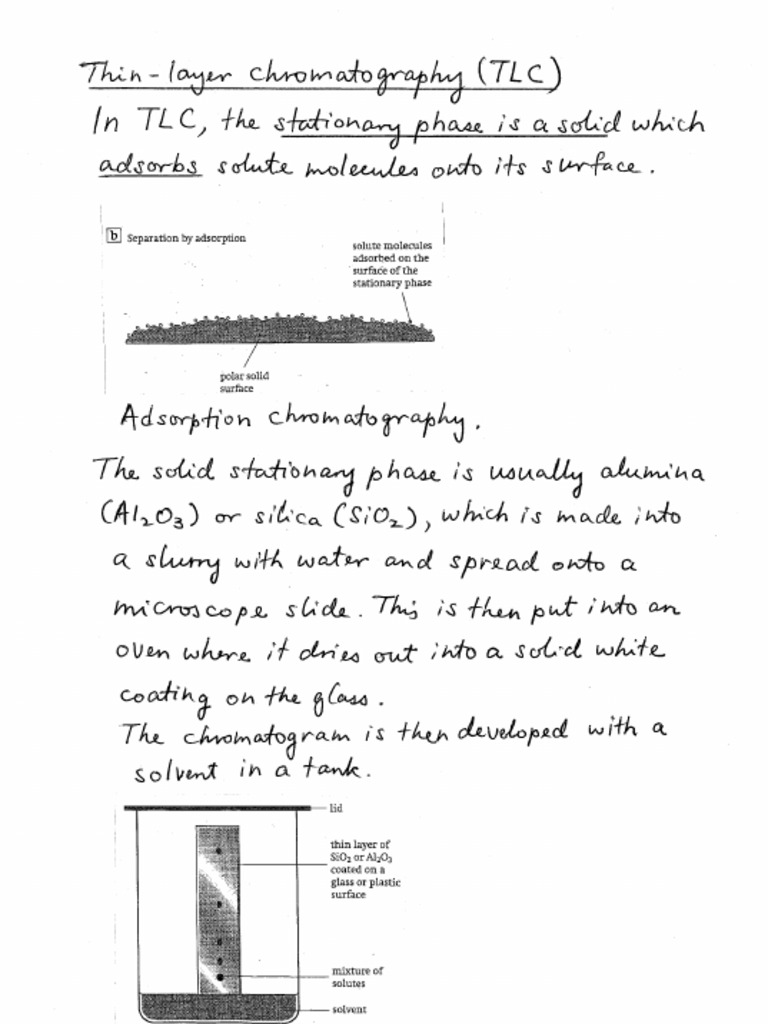 Thin-layer chromatography (TLC)
In TLC, the stationary phase is a solid which
adsorbs solute molecules onto its surface.
b Separation by adsorption
solute molecules
adsorbed on the
surface of the
stationary phase
polar solid
surface
Adsorption chromatography.
The solid stationary phase is usually alumina
(Al₂O₃) or silica (SiO₂), which is made into
a slurry with water and spread onto a
microscope slide. This is then put into an
oven where it dries out into a solid white
coating on the glass.
The chromatogram is then developed with a
solvent in a tank.
lid
thin layer of
SiO₂ or Al₂O₃
coated on a
glass or plastic
surface
mixture of
solutes
solvent